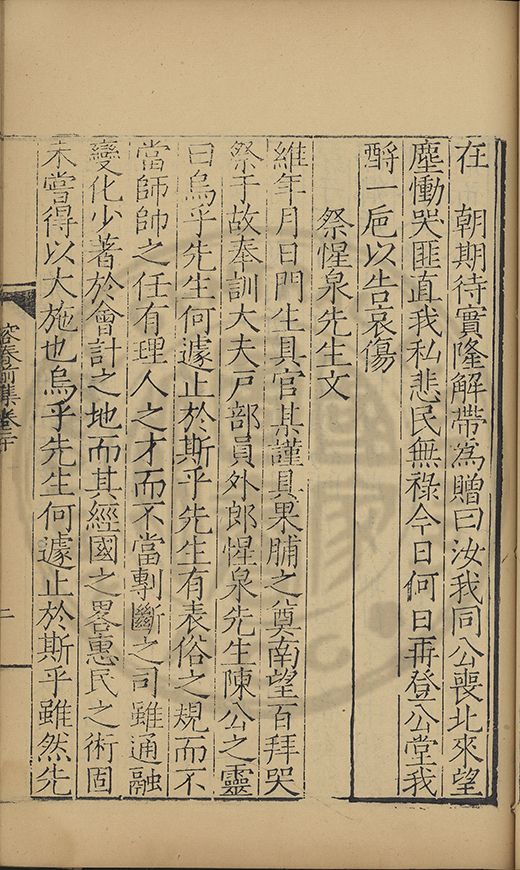 在　朝期待實隆解帶爲贈曰汝我同公喪北來望
塵慟哭匪直我私悲民無祿今日何日再登公堂我
酹一巵以告哀傷
祭惺泉先生文
維年月日門生具官某謹具果脯之奠南望百拜哭
祭于故奉訓大夫戸部員外郎惺泉先生陳公之靈
曰烏乎先生何遽止於斯乎先生有表俗之規而不
當師帥之任有理人之才而不當剸斷之司雖通融
變化少著於會計之地而其經國之畧惠民之術固
未嘗得以大施也烏乎先生何遽止於斯乎雖然先
容春前集卷二十
二